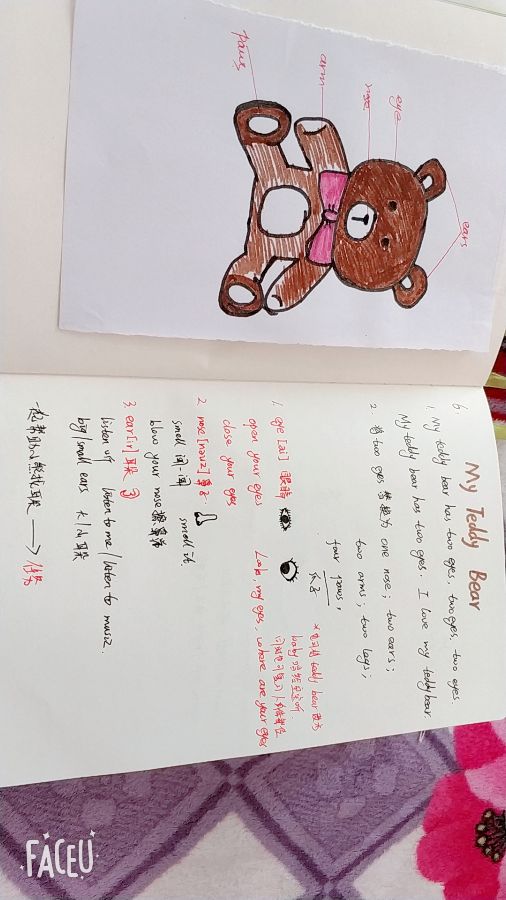 paws
arm
nose
eye
ears
My Teddy Bear
6.
1. My teddy bear has two eyes. two eyes. two eyes
My teddy bear has two eyes. I love my teddy bear.
2. 将 two eyes 替换为 one nose; two ears;
two arms; two legs;
four paws,
爪子
baby
teddy bear
1. eye [ai] 眼睛
open your eyes
close your eyes
Look, my eyes. where are your eyes
2. nose [nəuz] 鼻子
smell 闻·闻
smell
blow your nose 擤鼻涕
3. ear [ir] 耳朵
listen listen to me / listen to music.
big/small ears 大/小耳朵
一起帮助小熊找耳朵 → 任务
FACEU